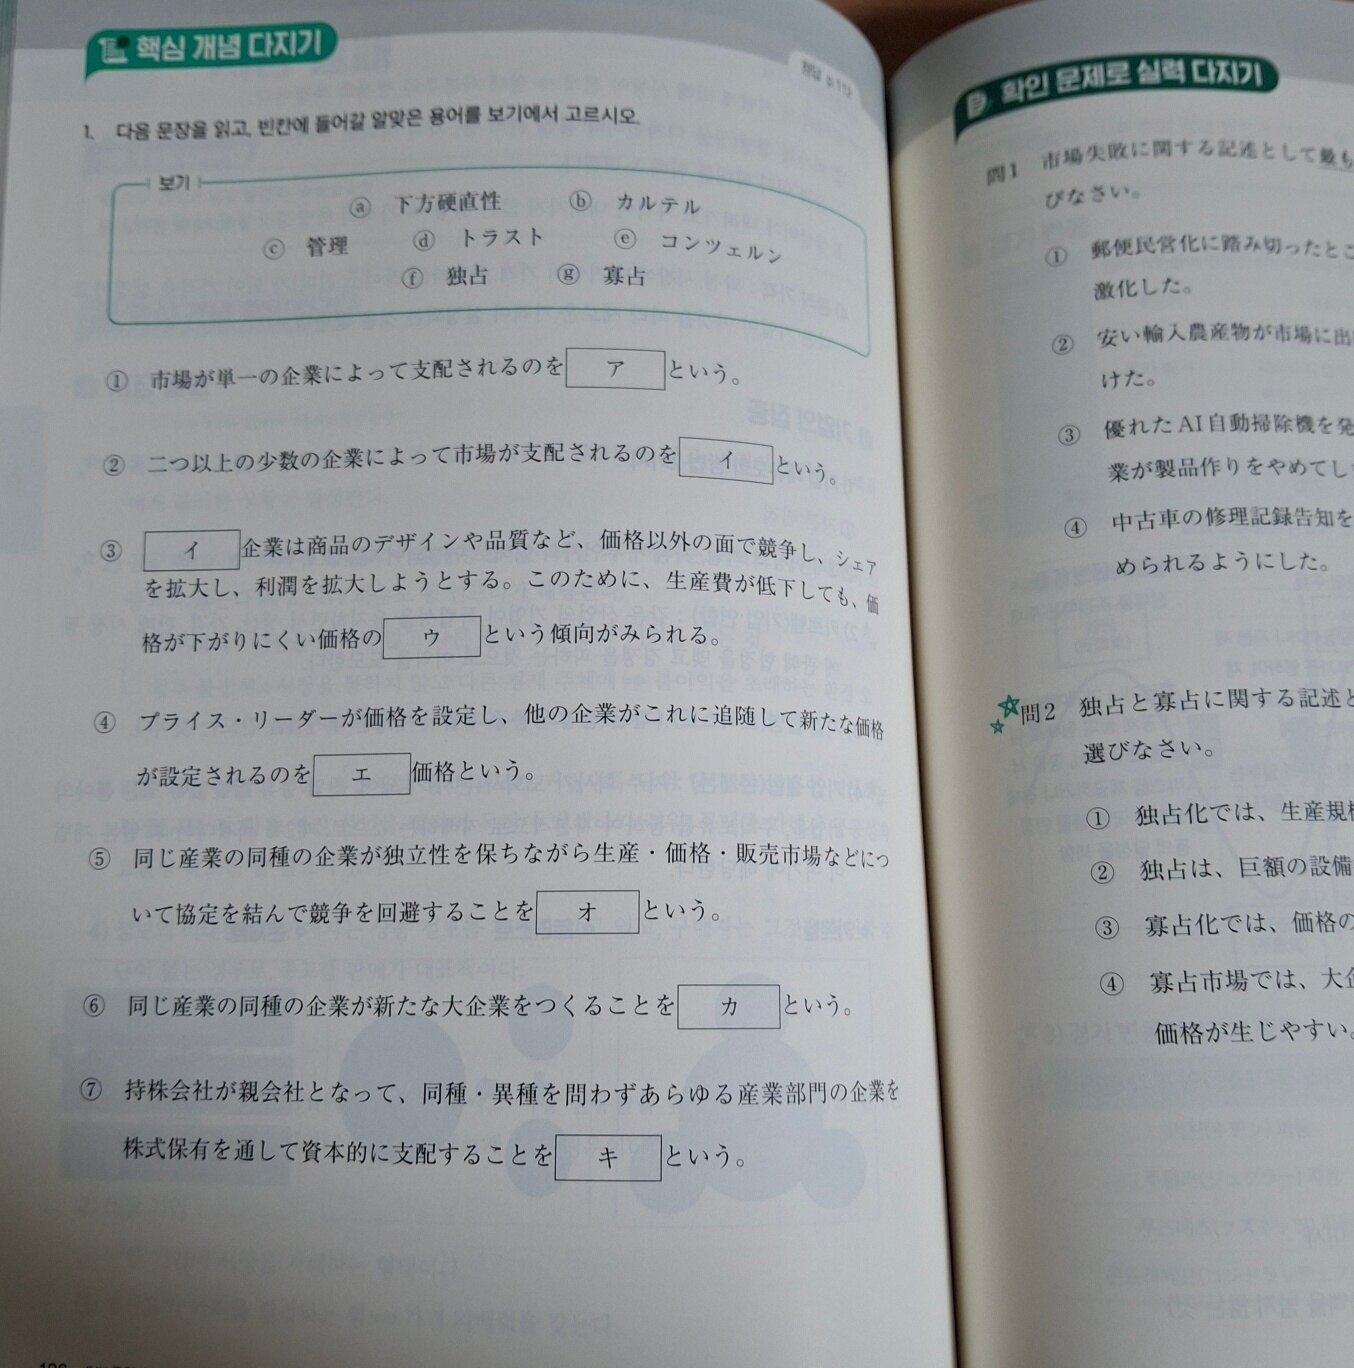 핵심 개념 다지기
정답
1. 다음 문장을 읽고, 빈칸에 들어갈 알맞은 용어를 보기에서 고르시오.
보기
ⓐ 下方硬直性 ⓑ カルテル
ⓒ 管理 ⓓ トラスト ⓔ コンツェルン
ⓕ 独占 ⓖ 寡占
① 市場が単一の企業によって支配されるのを ア という。
② 二つ以上の少数の企業によって市場が支配されるのを イ という。
③ イ 企業は商品のデザインや品質など、価格以外の面で競争し、シェア
を拡大し、利潤を拡大しようとする。このために、生産費が低下しても、価
格が下がりにくい価格の ウ という傾向がみられる。
④ プライス・リーダーが価格を設定し、他の企業がこれに追随して新たな価格
が設定されるのを エ 価格という。
⑤ 同じ産業の同種の企業が独立性を保ちながら生産・価格・販売市場などにつ
いて協定を結んで競争を回避することを オ という。
⑥ 同じ産業の同種の企業が新たな大企業をつくることを カ という。
⑦ 持株会社が親会社となって、同種・異種を問わずあらゆる産業部門の企業を
株式保有を通して資本的に支配することを キ という。
확인 문제로 실력 다지기
問1 市場失敗に関する記述として最も
びなさい。
① 郵便民営化に踏み切ったとこ
激化した。
② 安い輸入農産物が市場に出
けた。
③ 優れたAI自動掃除機を発
業が製品作りをやめてし
④ 中古車の修理記録告知を
められるようにした。
問2 独占と寡占に関する記述と
選びなさい。
① 独占化では、生産規模
② 独占は、巨額の設備
③ 寡占化では、価格の
④ 寡占市場では、大企
価格が生じやすい。